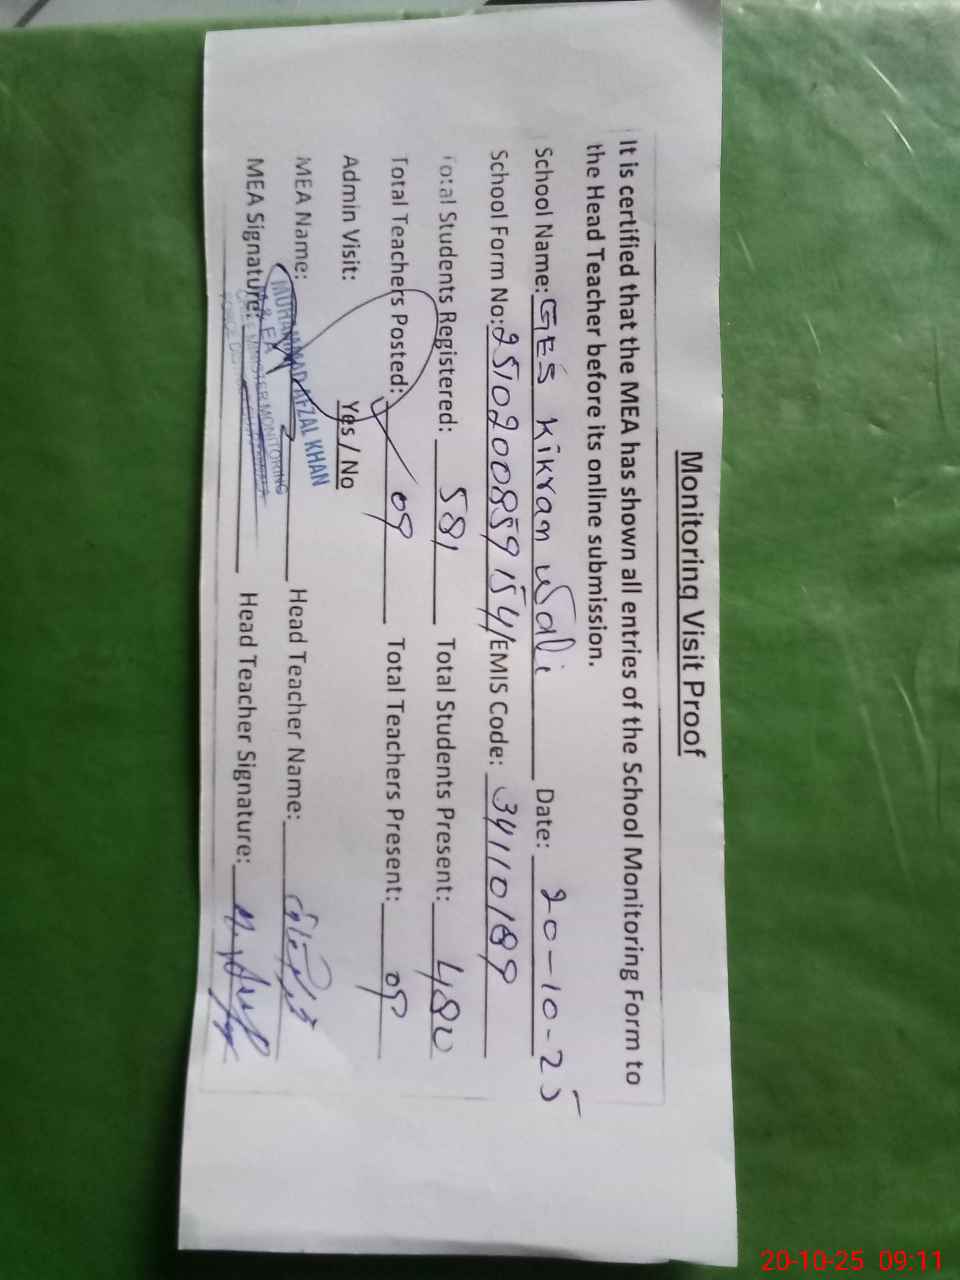 Monitoring Visit Proof
It is certified that the MEA has shown all entries of the School Monitoring Form to
the Head Teacher before its online submission.
School Name: GES Kikran Wali Date: 20-10-25
School Form No: 2510200859154/EMIS Code: 34110189
Total Students Registered: 581 Total Students Present: 480
Total Teachers Posted: 09 Total Teachers Present: 09
Admin Visit: Yes / No
MEA Name: MUHAMMAD AFZAL KHAN Head Teacher Name:
MEA Signature: Head Teacher Signature:
M & EA
MINISTER MONITORING
20-10-25 09:11